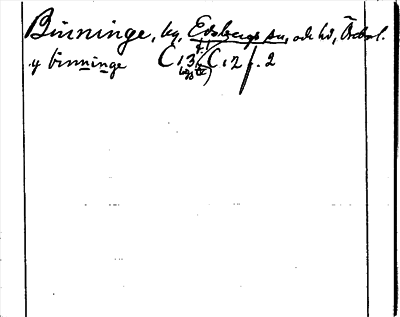 Binninge, by, Edsbergs sn, och hd, Örebro l.
y binninge C 13 C 12 f. 2